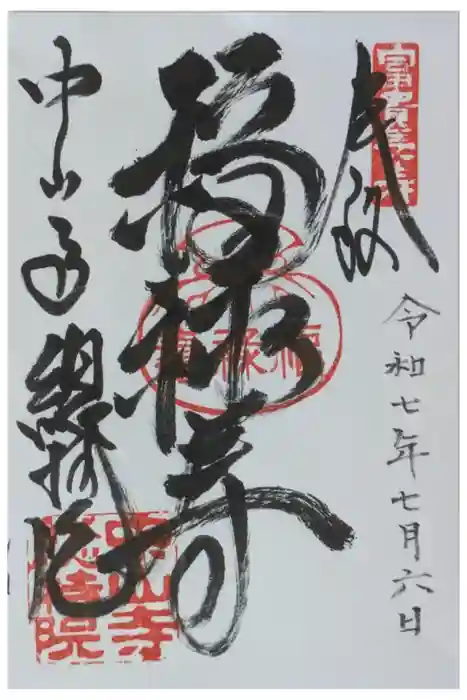 奉拝
富貴長寿
令和七年七月六日
福禄寿
福禄寿
中山寺總持院
中山寺総持院